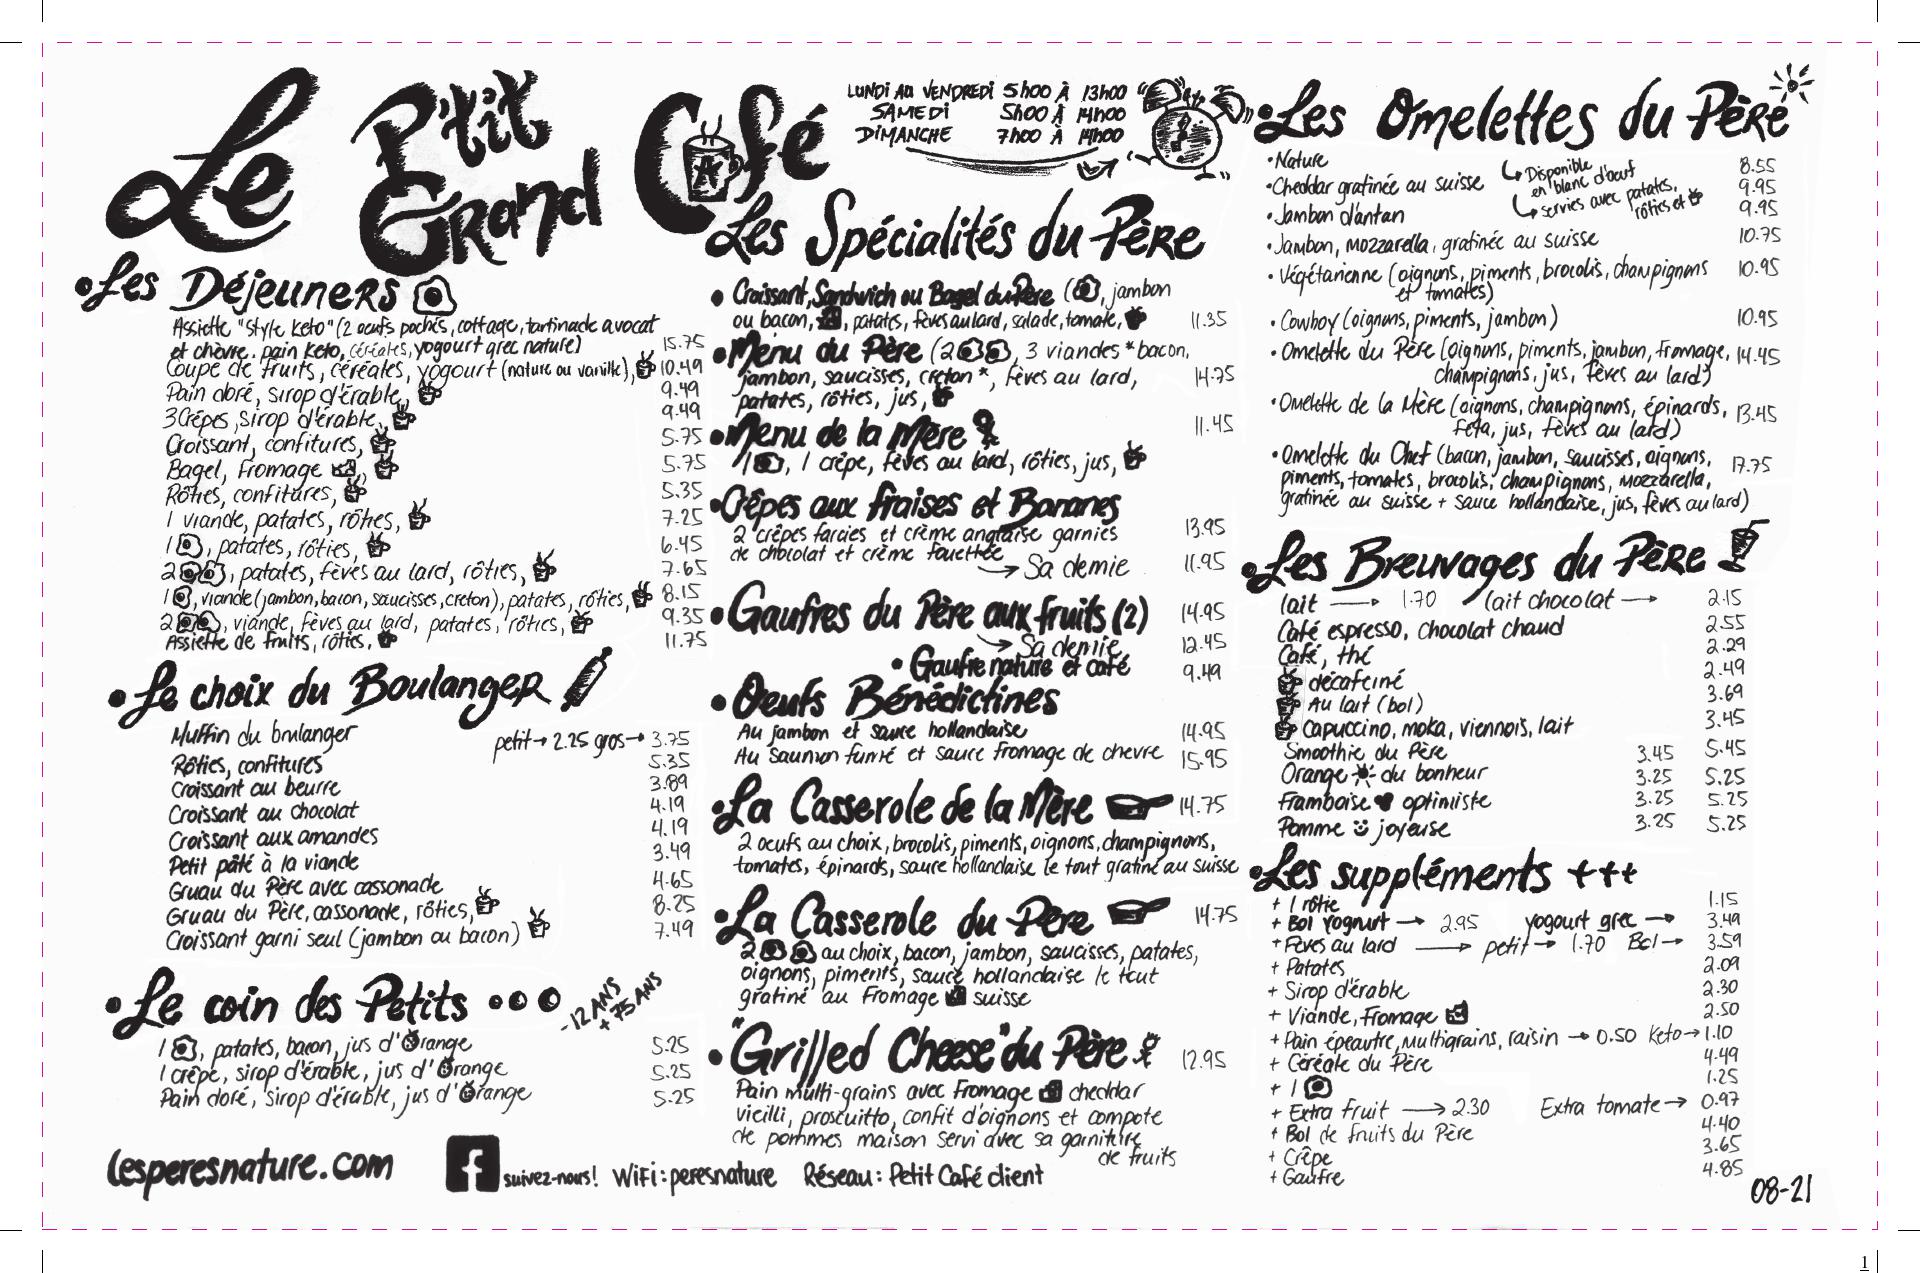 Le P'tit Grand Café
LUNDI AU VENDREDI 5h00 À 13h00
SAMEDI 5h00 À 14h00
DIMANCHE 7h00 À 14h00
• Les Déjeuners
Assiette "style keto" (2 oeufs pochés, cottage, tartinade avocat
et chèvre, pain keto, céréales, yogourt grec nature) 15.75
Coupe de fruits, céréales, yogourt (nature ou vanille), 10.49
Pain doré, sirop d'érable, 9.49
3 Crêpes, sirop d'érable, 9.49
Croissant, confitures, 5.75
Bagel, fromage , 5.75
Rôties, confitures, 5.35
1 viande, patates, rôties, 7.25
1 , patates, rôties, 6.45
2 , patates, fèves au lard, rôties, 7.65
1 , viande (jambon, bacon, saucisses, creton), patates, rôties, 8.15
2 , viande, fèves au lard, patates, rôties, 9.35
Assiette de fruits, rôties, 11.75
• Le choix du Boulanger
Muffin du boulanger petit → 2.25 gros → 3.75
Rôties, confitures 5.35
Croissant au beurre 3.89
Croissant au chocolat 4.19
Croissant aux amandes 4.19
Petit pâté à la viande 3.49
Gruau du Père avec cassonade 4.65
Gruau du Père, cassonade, rôties, 8.25
Croissant garni seul (jambon ou bacon) 7.49
• Le coin des Petits
-12 ANS
+75 ANS
1 , patates, bacon, jus d'Orange 5.25
1 crêpe, sirop d'érable, jus d'Orange 5.25
Pain doré, sirop d'érable, jus d'Orange 5.25
Les Spécialités du Père
• Croissant, Sandwich ou Bagel du Père ( , jambon
ou bacon, , patates, fèves au lard, salade, tomate, 11.35
• Menu du Père (2 , 3 viandes *bacon,
jambon, saucisses, creton*, fèves au lard, 14.75
patates, rôties, jus,
• Menu de la Mère 11.45
1 , 1 crêpe, fèves au lard, rôties, jus,
• Crêpes aux fraises et Bananes
2 crêpes farcies et crème anglaise garnies 13.95
de chocolat et crème fouettée
→ Sa demie 11.95
• Gaufres du Père aux fruits (2) 14.95
→ Sa demie 12.45
• Gaufre nature et café 9.49
• Oeufs Bénédictines
Au jambon et sauce hollandaise 14.95
Au Saumon fumé et sauce fromage de chevre 15.95
• La Casserole de la Mère 14.75
2 oeufs au choix, brocolis, piments, oignons, champignons,
tomates, épinards, sauce hollandaise le tout gratiné au suisse
• La Casserole du Père 14.75
2 au choix, bacon, jambon, saucisses, patates,
oignons, piments, sauce hollandaise le tout
gratiné au fromage suisse
• "Grilled Cheese" du Père 12.95
Pain multi-grains avec fromage cheddar
vieilli, proscuitto, confit d'oignons et compote
de pommes maison servi avec sa garniture
de fruits
• Les Omelettes du Père
↳ Disponible
en blanc d'oeuf
↳ servies avec patates,
rôties et
• Nature 8.55
• Cheddar gratinée au suisse 9.95
• Jambon d'antan 9.95
• Jambon, mozzarella, gratinée au suisse 10.75
• Végétarienne (oignons, piments, brocolis, champignons 10.95
et tomates)
• Cowboy (oignons, piments, jambon) 10.95
• Omelette du Père (oignons, piments, jambon, fromage, 14.45
champignons, jus, fèves au lard)
• Omelette de la Mère (oignons, champignons, épinards, 13.45
feta, jus, fèves au lard)
• Omelette du Chef (bacon, jambon, saucisses, oignons, 17.75
piments, tomates, brocolis, champignons, mozzarella,
gratinée au suisse + sauce hollandaise, jus, fèves au lard)
• Les Breuvages du Père
lait → 1.70 lait chocolat → 2.15
Café espresso, chocolat chaud 2.55
Café, thé 2.29
décafeiné 2.49
Au lait (bol) 3.69
Capuccino, moka, viennois, lait 3.45
Smoothie du Père 3.45 5.45
Orange du bonheur 3.25 5.25
Framboise optimiste 3.25 5.25
Pomme joyeuse 3.25 5.25
• Les suppléments +++
+ 1 rôtie 1.15
+ Bol yogourt → 2.95 yogourt grec → 3.49
+ Fèves au lard → petit → 1.70 Bol → 3.59
+ Patates 2.09
+ Sirop d'érable 2.30
+ Viande, fromage 2.50
+ Pain épeautre, multigrains, raisin → 0.50 Keto → 1.10
+ Céréale du Père 4.49
+ 1 1.25
+ Extra fruit → 2.30 Extra tomate → 0.97
+ Bol de fruits du Père 4.40
+ Crêpe 3.65
+ Gaufre 4.85
lesperesnature.com
f suivez-nous! WiFi: peresnature Réseau: Petit Café client
08-21
1